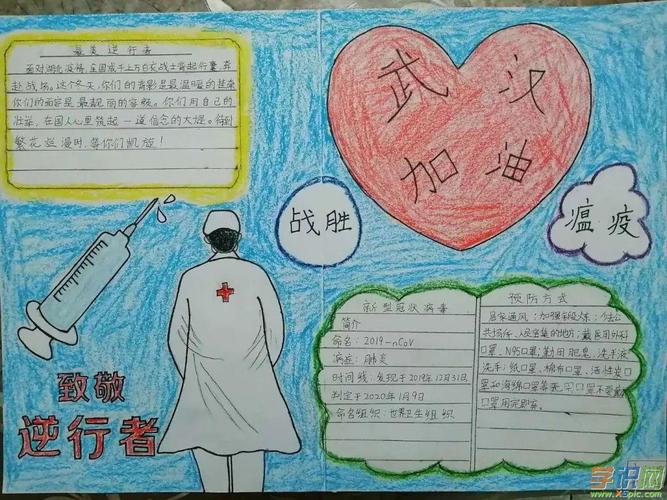 最美逆行者
面对湖北疫情,全国成千上万白衣战士背起行囊,奔
赴战场。这个冬天,你们的背影是最温暖的挂来
你们的面容是最靓丽的容貌。你们用自己的
壮举,在国人心里筑起一道信念的大堤。待到
繁花烂漫时,等你们凯旋!
武汉
加油
战胜
瘟疫
致敬
逆行者
新型冠状病毒
简介
命名:2019-nCoV
病症:肺炎
时间线:发现于2019年12月31日
判定于2020年1月9日
命名组织:世界卫生组织
预防方式
居家通风;加强锻炼;少去公
共场所、人员密集的地方;戴医用外科
口罩,N95口罩;勤用肥皂、洗手液
洗手;纸口罩、棉布口罩、活性炭口
罩和海绵口罩等无口罩不要戴
口罩用完即弃。
学识网
www.XSpic.com